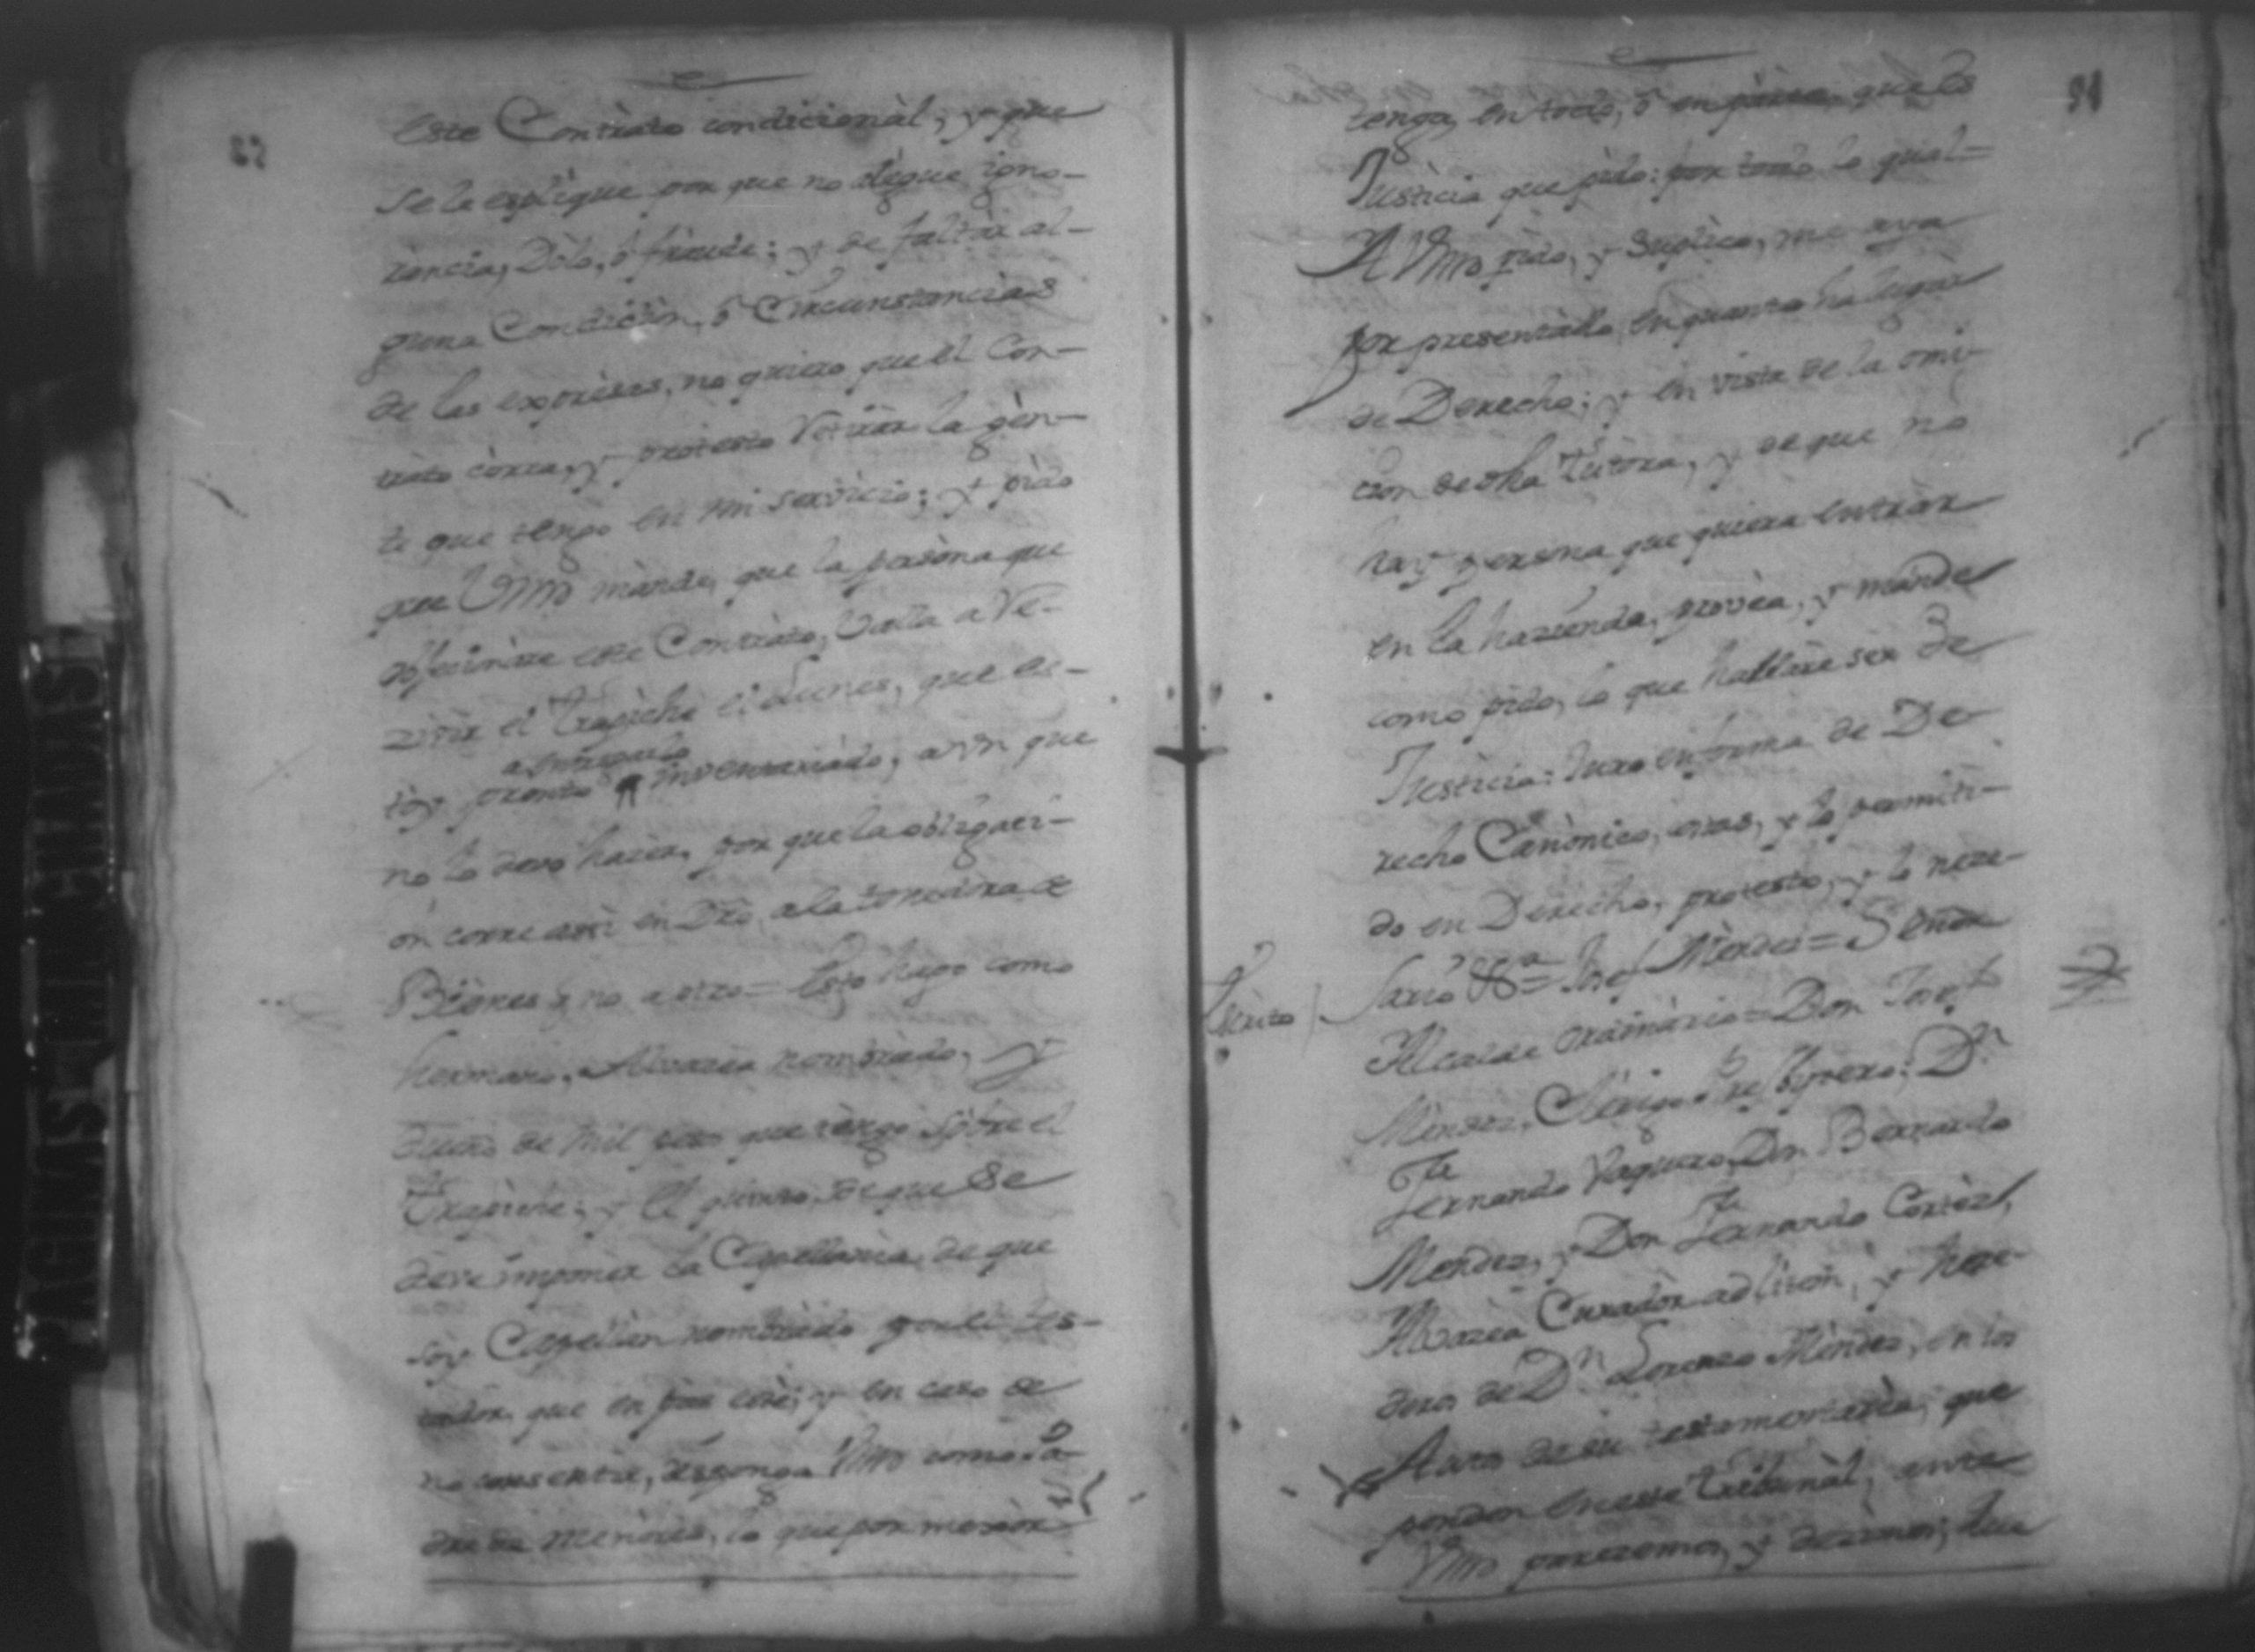 este Contrato condicional, y que
se le explique por que no alegue igno-
rancia, Dolo, ò fraude: y de faltar al-
guna Condicion, ò Circunstancias
de las expresas, no quiero que el Con-
trato corra, y protesto retirar la gen-
te que tengo en mi servicio; y pido
que Vmd mande, que la persona que
este Contrato, Valla a re-
zivir el trapiche el Lunes, que es-
a entregarlo
toy pronto inventariado, aun que
no lo devo hazer, por que la obligaci-
on corre assi en Dro, a la tenedora de
Bienes y no a otro = Esto hago como
hermano, Alvazea nombrado, y
dueño de mil pesos que tengo sobre el
Trapiche; y el quinto, de que se
deve imponer la Capellania, de que
soy Capellan nombrado por el tes-
tador, que en paz esté; y en caso de
no consentir, disponga Vmd como Pa-
dre de menores, lo que por mexor
91
tenga, en todo, ò en parte, que es
Justicia que pido: por todo lo qual =
A Vmd pido, y suplico, me aya
por presentado, en quanto ha lugar
de Derecho; y en vista de la omi-
cion de dha Tutora, y de que no
hay persona que quiera entrar
en la hazienda, provea, y mande
como pido, lo que hallare ser de
Justicia: Juro en forma de De-
recho Canonico, costas, y lo permiti-
do en Derecho, protesto, y lo neze-
Escrito
sario &a = Josef Mendez = Señor
Alcalde Ordinario = Don Josef
Mendez, Clerigo Presbytero; Dn
Fernando Vaquero, Don Bernardo
Mendez, y Don Fernando Cortez,
Alvazea Curador ad litem, y here-
deros de Dn Lorenzo Mendez, en los
Autos de su testamentaria, que
penden en este Tribunal, ante
Vmd parezemos, y dezimos; Que